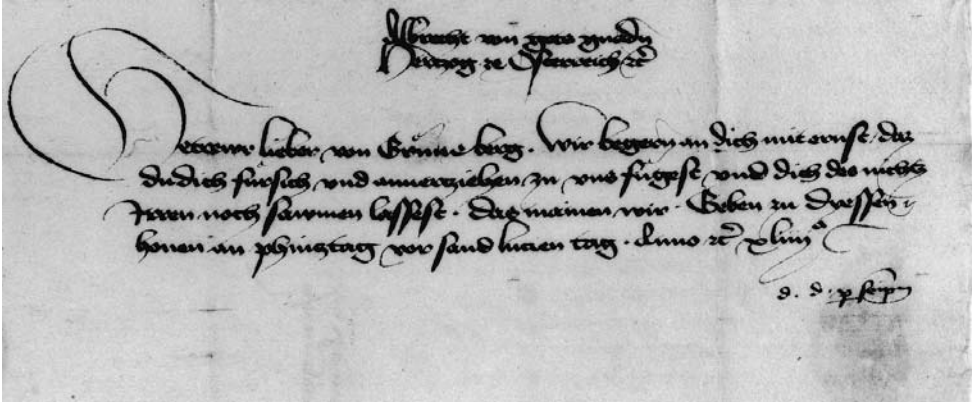 Albrecht von gots gnadn
Hertzog ze Österreich etc
Getrewr lieber von Grünneberg. Wir begern an dich mit ernst, daz
du dich fürsich und anvertziehen zu uns fügest und dich des nichts
Irren noch sawmen lassest. daz mainen wir. Geben zu Dyessen
houen an phinztag vor sand lucien tag. Anno etc xliiij°
d. d. p